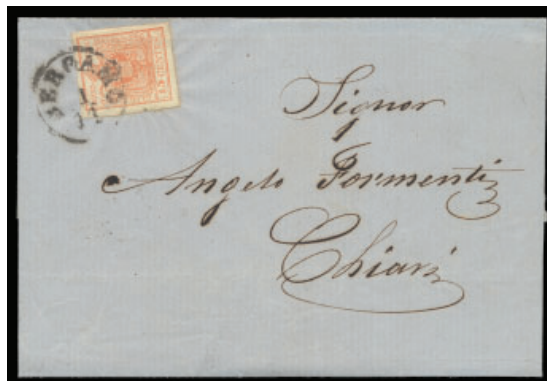 BERGAMO
Signor
Angelo Formenti
Chiari